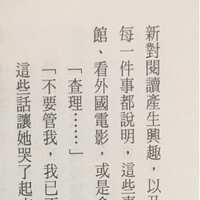 新對閱讀產生興趣，以及
每一件事都說明，這些
館、看外國電影，或是
「查理……」
「不要管我，我已
這些話讓她哭了起